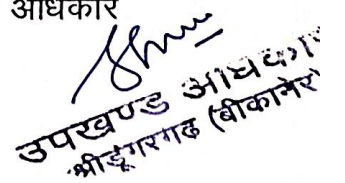 अधिकारी
उपखण्ड अधिकारी
श्रीडूंगरगढ (बीकानेर)